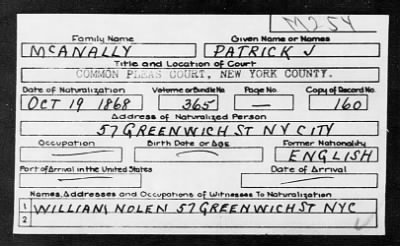 M254
Family Name Given Name or Names
MCANALLY PATRICK J
Title and Location of Court
COMMON PLEAS COURT, NEW YORK COUNTY.
Date of Naturalization Volume or Bundle No. Page No. Copy of Record No.
OCT 19 1868 365 — 160
Address of Naturalized Person
57 GREENWICH ST NY CITY
Occupation Birth Date or Age Former Nationality
ENGLISH
Port of Arrival in the United States Date of Arrival
Names, Addresses and Occupations of Witnesses To Naturalization
1 WILLIAM NOLEN 57 GREENWICH ST NYC
2